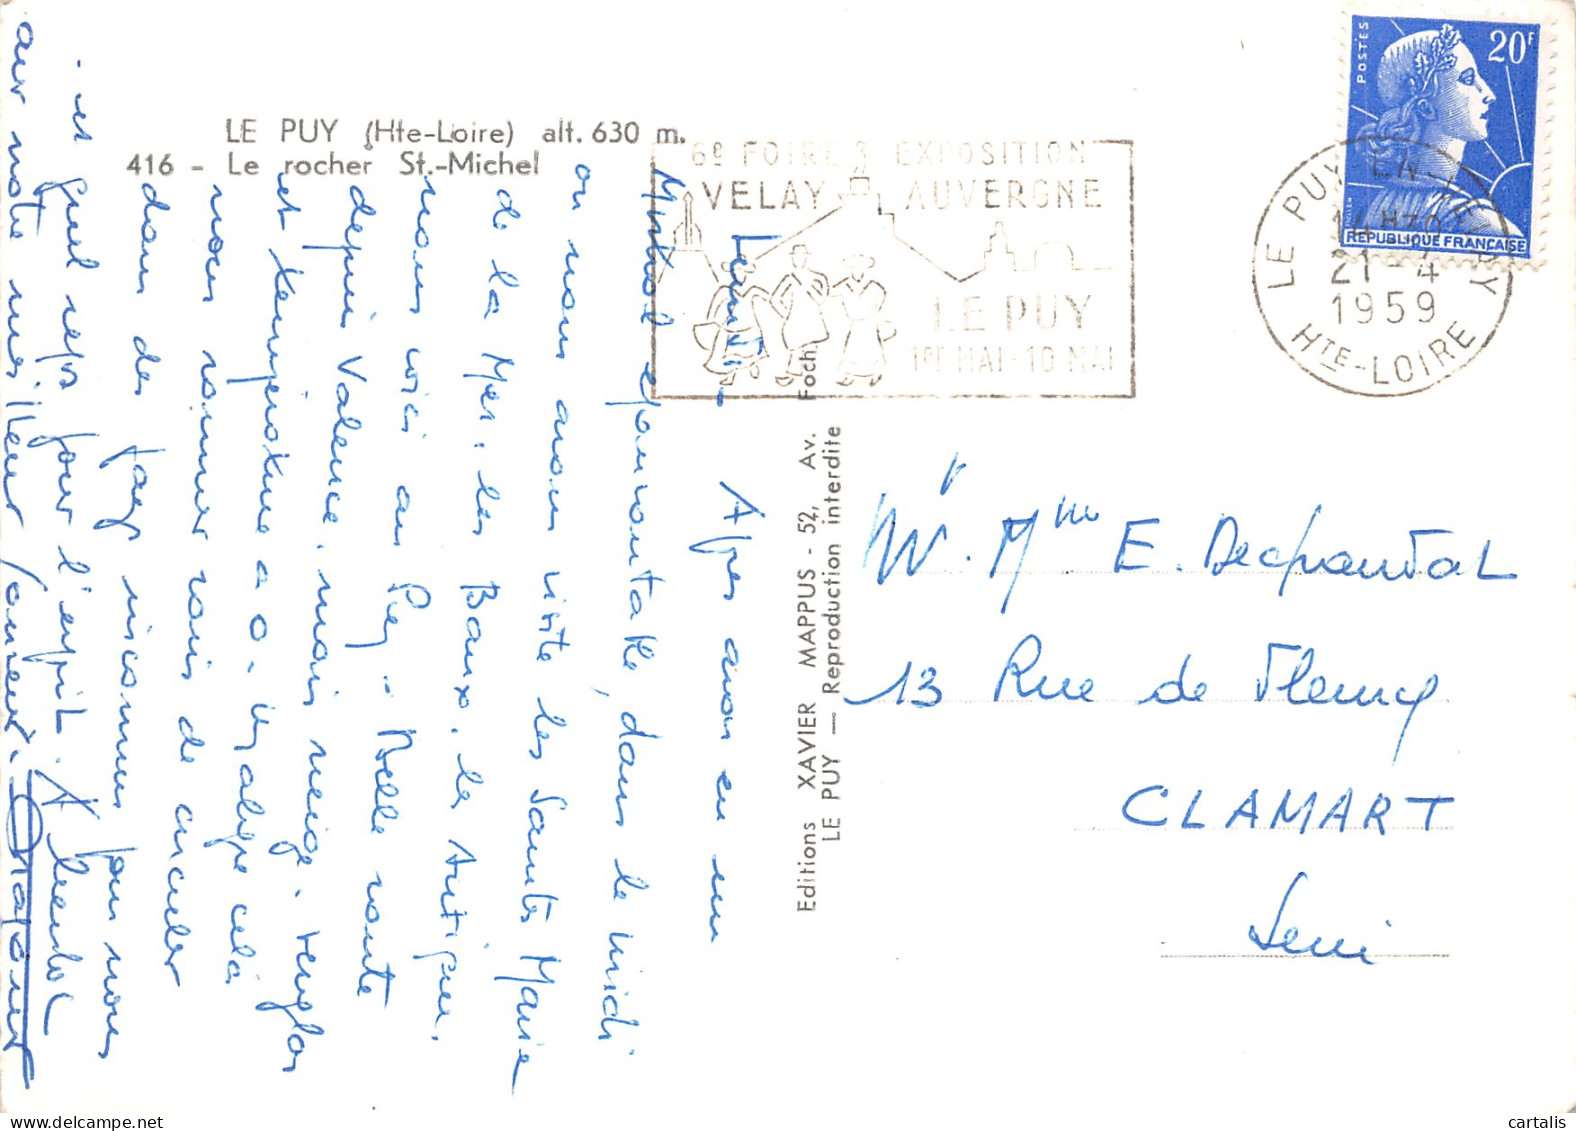 LE PUY (Hte-Loire) alt. 630 m.
416 - Le rocher St.-Michel
6e FOIRE EXPOSITION
VELAY AUVERGNE
LE PUY
1er MAI - 10 MAI
POSTES
20F
REPUBLIQUE FRANÇAISE
LE PUY EN VELAY
14H30
21-4
1959
HTE-LOIRE
Editions XAVIER MAPPUS - 52, Av. Foch
LE PUY — Reproduction interdite
Lundi
Après avoir eu un
Mistral epouvantable, dans le midi
où nous avons visité les Saintes Marie
de la Mer, les Baux, les Antiques,
nous voici au Puy. Belle route
depuis Valence, mais neige
et température à 0. Malgré cela
nous sommes ravis de circuler
dans des pays inconnus pour nous
et quel repos pour l'esprit. A bientot
avec notre meilleur souvenir
M. Mme E. Dechandat
13 Rue de Fleury
CLAMART
Seine
cartalis
delcampe.net